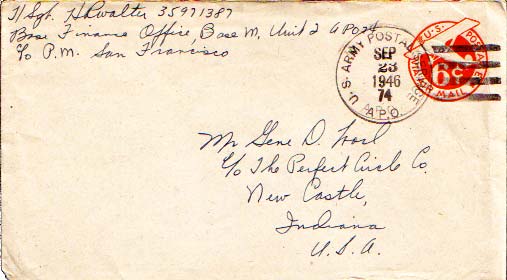 T/Sgt. H Lwalter 35971387
Base Finance Office, Base M, Unit 2 APO 74
c/o P.M. San Francisco
U.S. ARMY POSTAL
SEP
23
1946
74
A.P.O.
U.S. POSTAGE
6¢
AIR MAIL
Mr Gene D.
c/o The Perfect Circle Co.
New Castle,
Indiana
U.S.A.